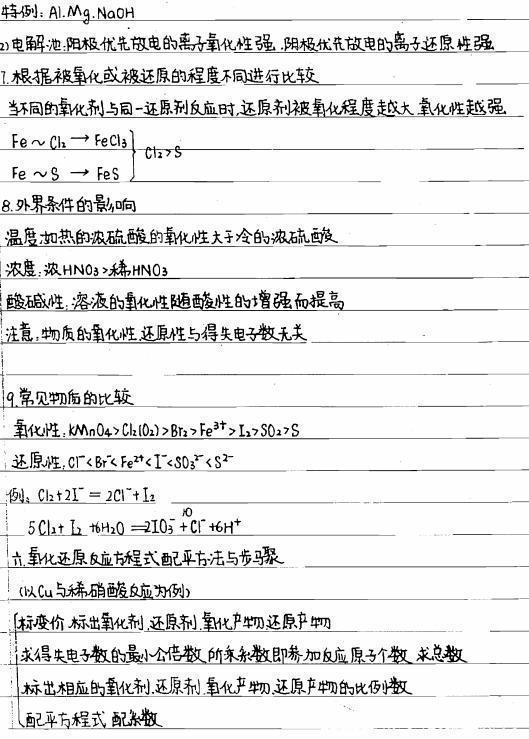 特例: Al.Mg.NaOH
2)电解池:阳极优先放电的离子氧化性强 .阳极优先放电的离子还原性强
7.根据被氧化或被还原的程度不同进行比较
当不同的氧化剂与同一还原剂反应时,还原剂被氧化程度越大,氧化性越强
Fe ~ Cl₂ → FeCl₃
Cl₂>S
Fe ~ S → FeS
8.外界条件的影响
温度:加热的浓硫酸的氧化性大于冷的浓硫酸
浓度:浓HNO₃>稀HNO₃
酸碱性:溶液的氧化性随酸性的增强而提高
注意:物质的氧化性.还原性与得失电子数无关
9.常见物质的比较
氧化性:KMnO₄>Cl₂(O₂)>Br₂>Fe³⁺>I₂>SO₂>S
还原性:Cl⁻<Br⁻<Fe²⁺<I⁻<SO₃²⁻<S²⁻
例: Cl₂+2I⁻=2Cl⁻+I₂
5Cl₂+I₂+6H₂O=2IO₃⁻+10Cl⁻+6H⁺
六.氧化还原反应方程式配平方法与步骤
(以Cu与稀硝酸反应为例)
标变价.标出氧化剂.还原剂.氧化产物.还原产物
求得失电子数的最小公倍数,所乘系数即参加反应原子个数,求总数
标出相应的氧化剂.还原剂.氧化产物.还原产物的比例数
配平方程式 配系数